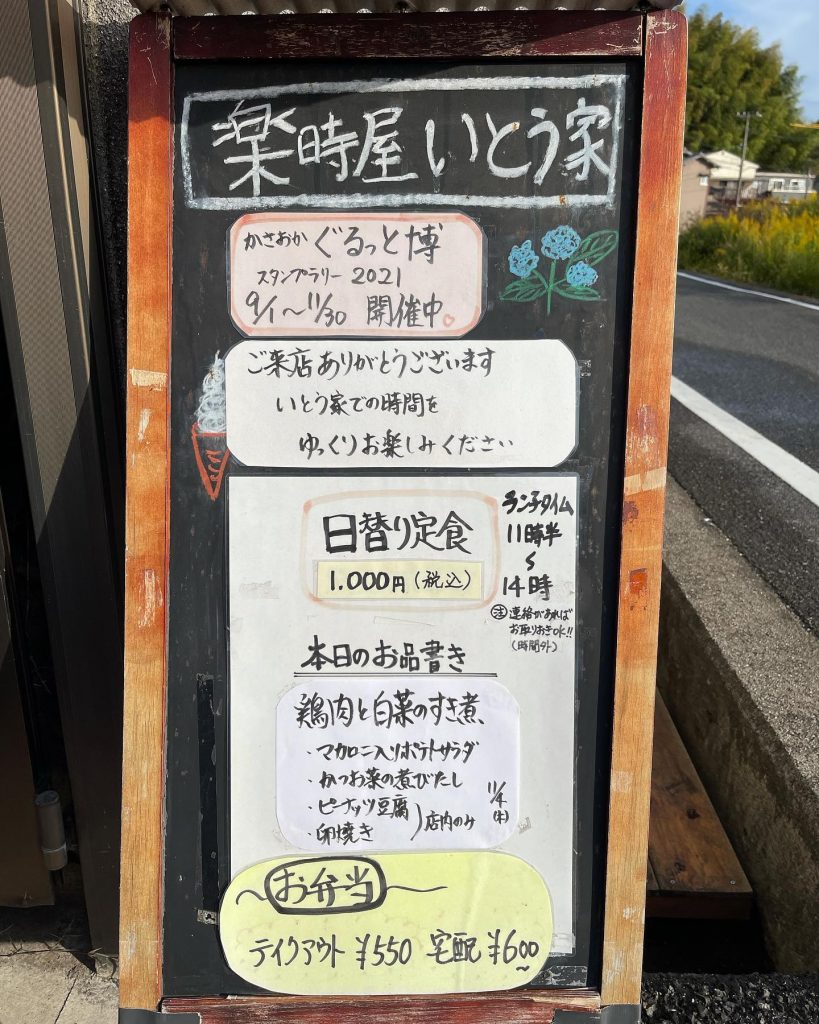 楽時屋 いとう家
かさおか ぐるっと博
スタンプラリー 2021
9/1〜11/30 開催中
ご来店ありがとうございます
いとう家での時間を
ゆっくりお楽しみください
日替り定食
1.000円(税込)
ランチタイム
11時半
〜
14時
㊟連絡があれば
お取りおきOK!!
(時間外)
本日のお品書き
鶏肉と白菜のすき煮
・マカロニ入りポテトサラダ
・かつお菜の煮びたし
・ピーナッツ豆腐
・卵焼き
)店内のみ
11/4
(木)
〜お弁当〜
テイクアウト ¥550 宅配 ¥600〜